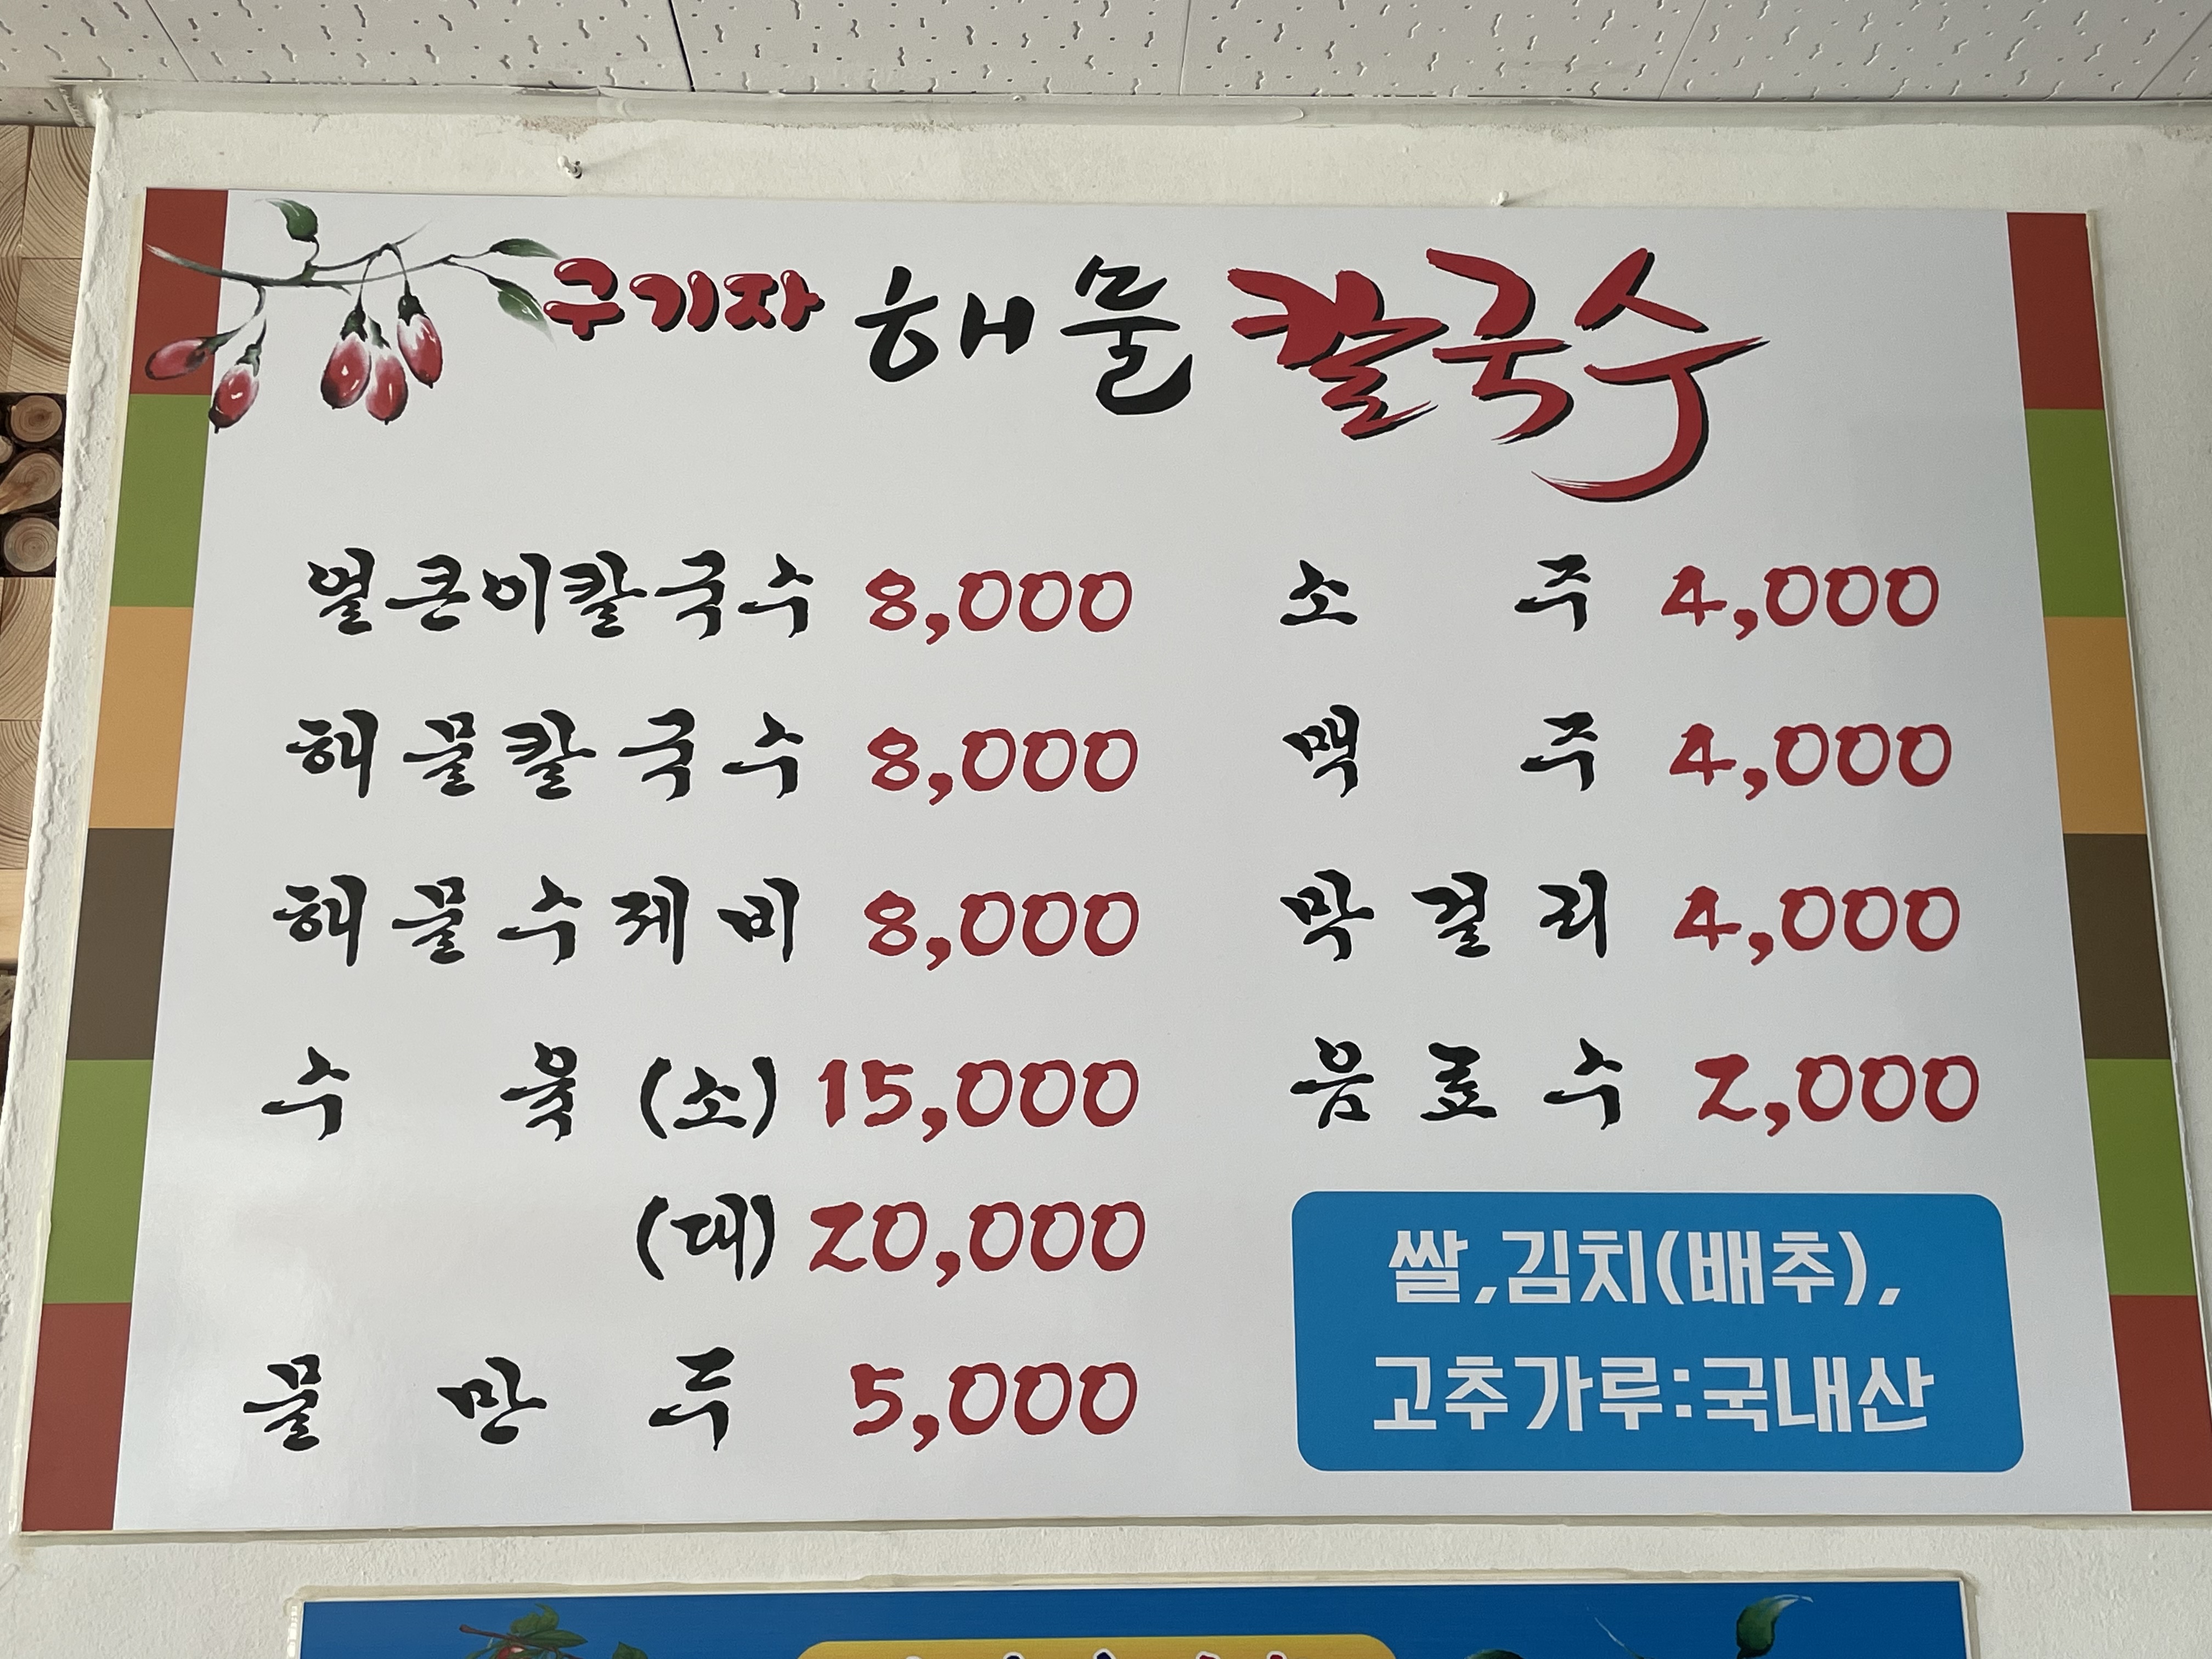 구기자 해물 칼국수
얼큰이칼국수 8,000
해물칼국수 8,000
해물수제비 8,000
수육 (소) 15,000
(대) 20,000
물만두 5,000
소주 4,000
맥주 4,000
막걸리 4,000
음료수 2,000
쌀,김치(배추),
고추가루:국내산